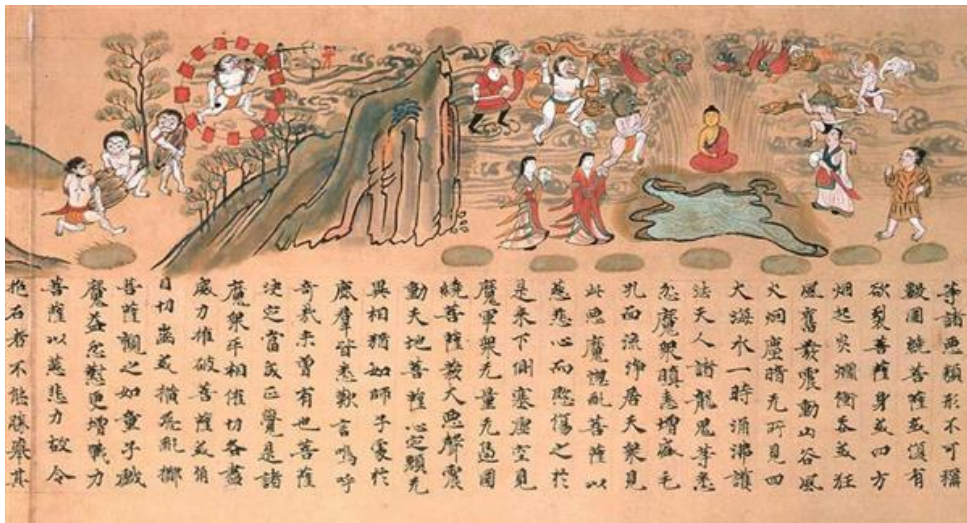 等諸惡類形不可稱
數圍繞菩薩或復有
欲裂菩薩身或四方
烟起炎爓衝天或狂
風奮發震動山谷風
火烟塵暗无所見四
大海水一時涌沸護
法天人諸龍鬼等悉
忿魔衆瞋恚增盛毛
孔血流淨居天衆見
此惡魔惱亂菩薩以
慈悲心而愍傷之於
是来下側塞虛空見
魔軍衆无量无邊圍
繞菩薩發大惡聲震
動天地菩薩心定顏无
異相猶如師子處於
鹿羣皆悉歎言嗚呼
奇哉未曾有也菩薩
决定當成正覺是諸
魔衆互相催切各盡
威力摧破菩薩或角
目切齒或橫飛亂擲
菩薩觀之如童子戲
魔益忿懟更增戰力
菩薩以慈悲力故令
抱石者不能勝舉其